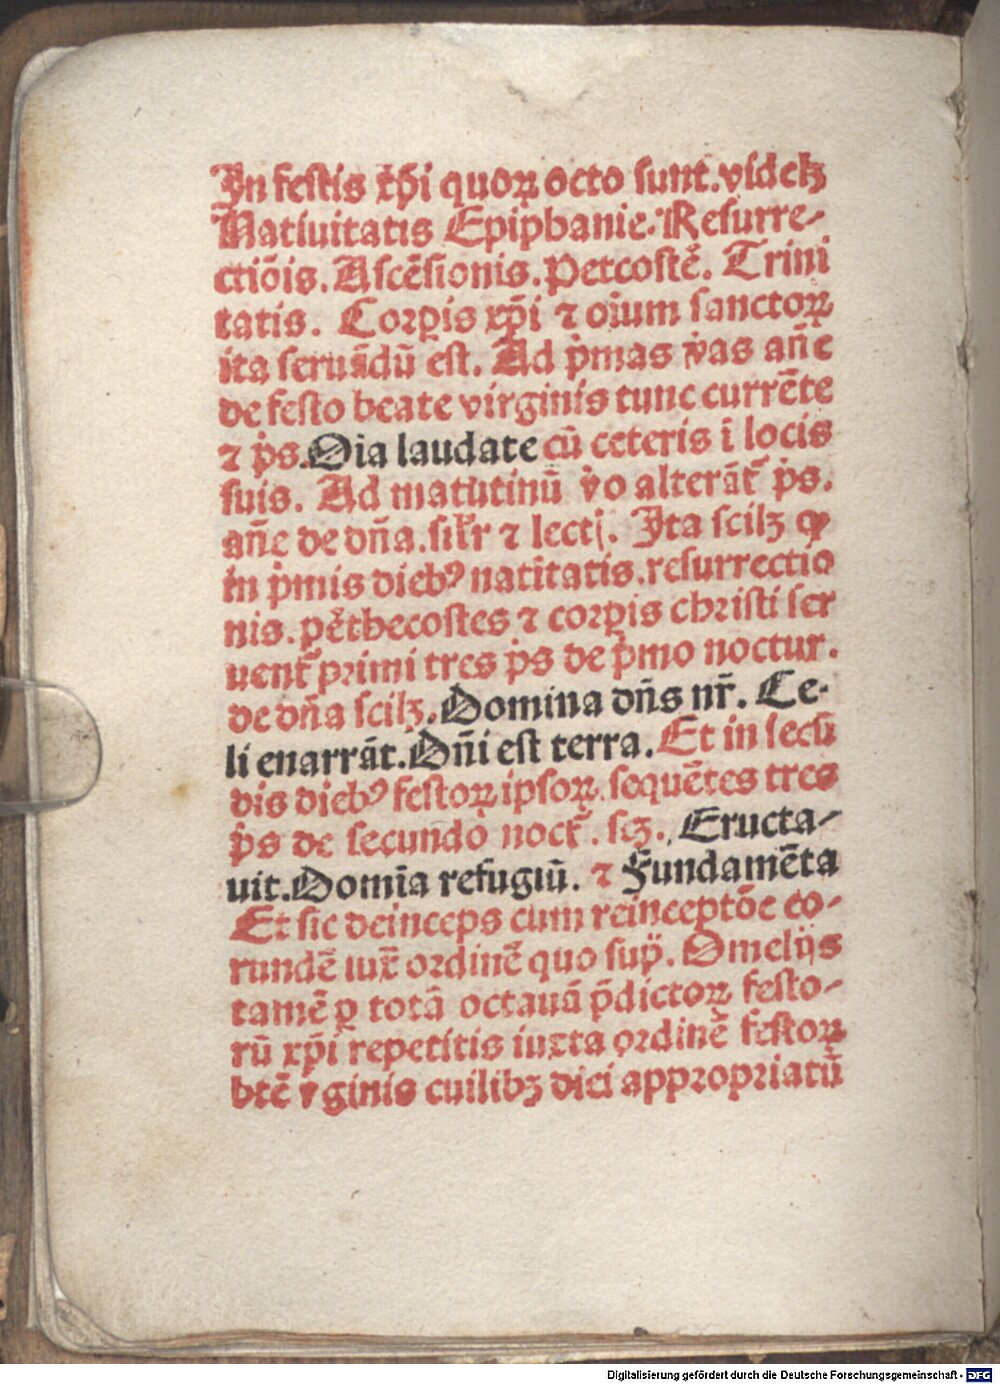 In festis xp̄i quoꝝ octo sunt. videlꝫ
Natiuitatis Epiphanie. Resurre-
ctiōis. Ascēsionis. Pētcostē. Trini
tatis. Corꝑis xp̄i ⁊ oīum sanctoꝝ
ita seruādū est. Ad p̄mas v̄as an̄e
de festo beate virginis tunc currēte
⁊ p̄s. Oīa laudate cū ceteris ī locis
suis. Ad matutinū v̄o alterāt᷑ p̄s.
an̄e de dn̄a. silr̄ ⁊ lectj. Ita scilꝫ ꝙ
in p̄mis diebꝰ natītatis. resurrectio
nis. pēthecostes ⁊ corꝑis christi ser
uent᷑ primi tres p̄s de p̄mo noctur.
de dn̄a scilꝫ. Domina dn̄s nr̄. Ce-
li enarrāt. Dn̄i est terra. Et in secū
dis diebꝰ festoꝝ ipsoꝝ. sequētes tres
p̄s de secundo noct᷑. scꝫ. Eructa-
uit. Domīa refugiū. ⁊ Fundamēta
Et sic deinceps cum reinceptōe eo-
rundē iux̄ ordinē quo sup̄. Omelijs
tamē ꝑ totā octauā p̄dictoꝝ festo-
rū xp̄i repetitis iuxta ordinē festoꝝ
btē v̄ginis cuilibꝫ diei appropriatū
Digitalisierung gefördert durch die Deutsche Forschungsgemeinschaft - DFG